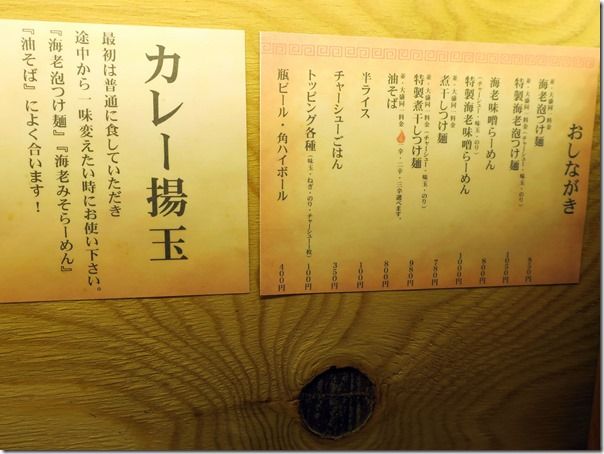 おしながき
並・大盛同一料金
海老泡つけ麺 850円
並・大盛同一料金(チャーシュー・味玉・のり)
特製海老泡つけ麺 1050円
海老味噌らーめん 800円
(チャーシュー・味玉・のり)
特製海老味噌らーめん 1000円
並・大盛同一料金
煮干しつけ麺 780円
並・大盛同一料金(チャーシュー・味玉・のり)
特製煮干しつけ麺 980円
並・大盛同一料金
油そば 辛・二辛・三辛選べます。 800円
半ライス 100円
チャーシューごはん 350円
トッピング各種(味玉・ねぎ・のり・チャーシュー1枚) 100円
瓶ビール・角ハイボール 400円
カレー揚玉
最初は普通に食していただき
途中から一味変えたい時にお使い下さい。
『海老泡つけ麺』『海老みそらーめん』
『油そば』によく合います!